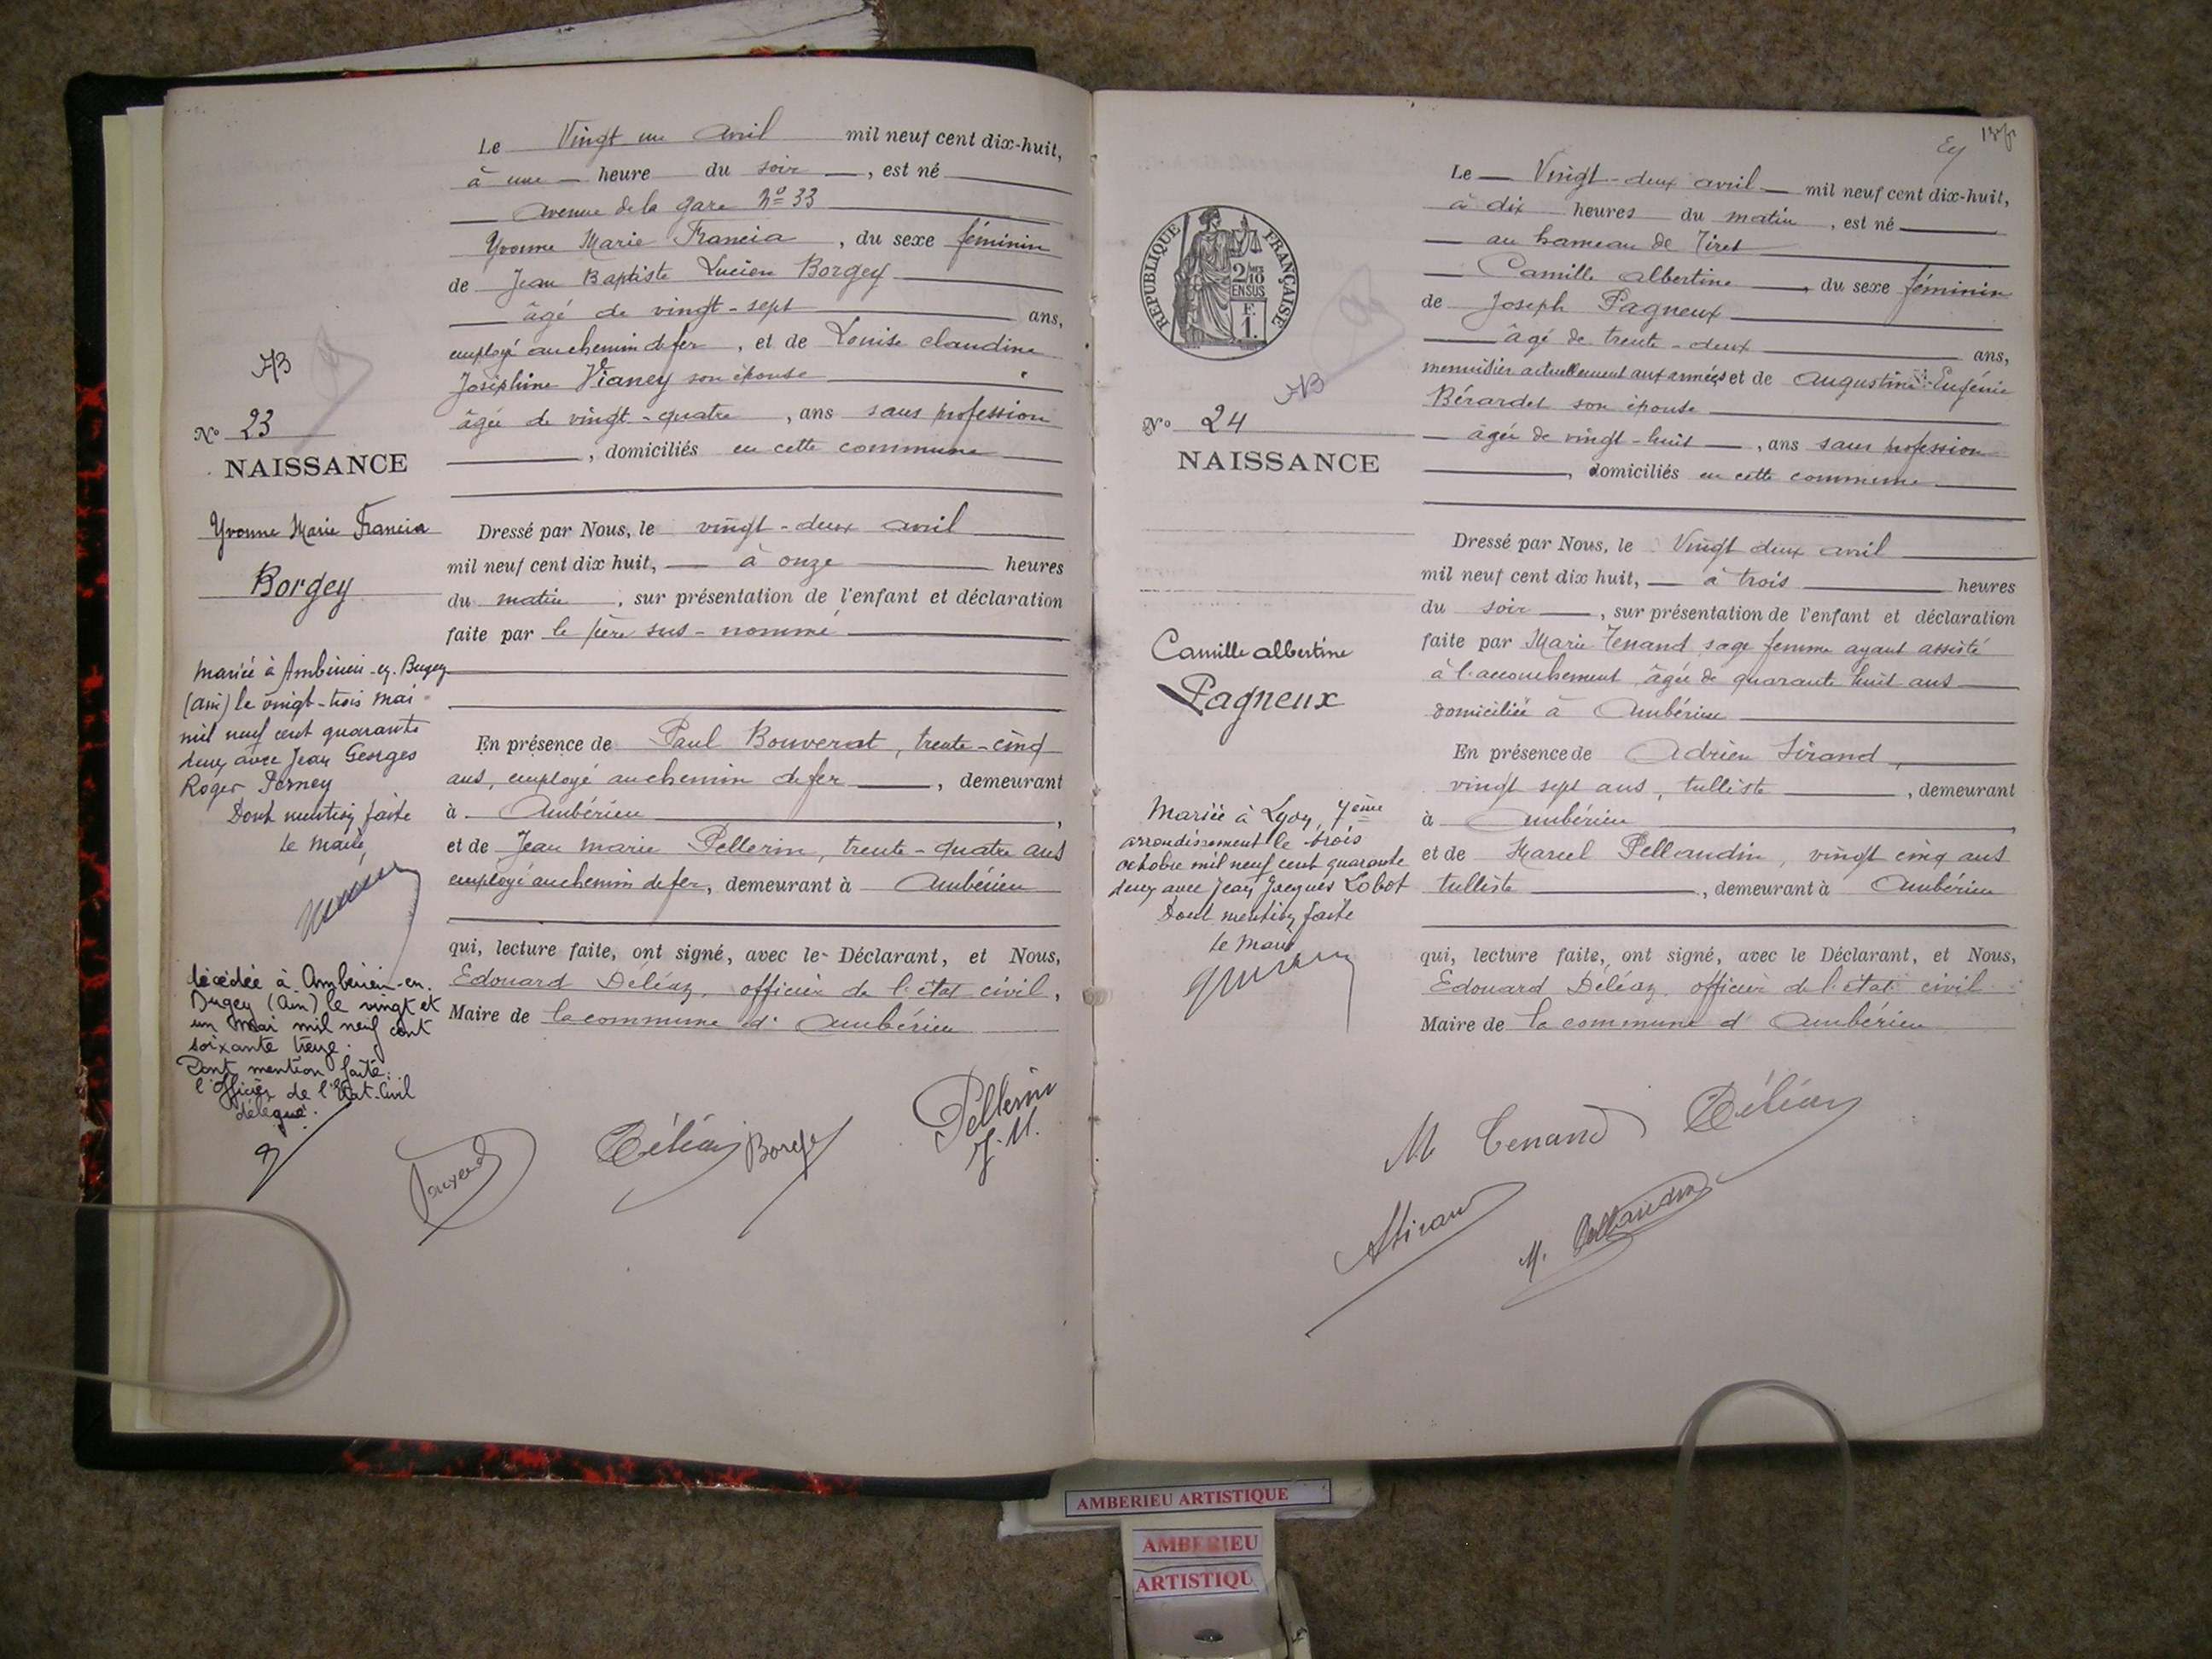 Le Vingt un avril mil neuf cent dix-huit,
à une heure du soir, est né
avenue de la gare Nº 33
Yvonne Marie Francia, du sexe féminin
de Jean Baptiste Lucien Borgey
âgé de vingt-sept ans,
employé au chemin de fer, et de Louise Claudine
Joséphine Vianey son épouse
âgée de vingt-quatre, ans sans profession
, domiciliés en cette commune
AB
Nº 23
NAISSANCE
Yvonne Marie Francia
Borgey
Dressé par Nous, le vingt-deux avril
mil neuf cent dix huit, à onze heures
du matin, sur présentation de l'enfant et déclaration
faite par le père sus-nommé
En présence de Paul Bouverat, trente-cinq
ans, employé au chemin de fer, demeurant
à Ambérieu,
et de Jean Marie Pellerin, trente-quatre ans
employé au chemin de fer, demeurant à Ambérieu
qui, lecture faite, ont signé, avec le Déclarant, et Nous,
Edouard Déléaz, officier de l'état civil,
Maire de la commune d'Ambérieu
Mariée à Ambérieu-en-Bugey
(Ain) le vingt-trois mai
mil neuf cent quarante
deux avec Jean Georges
Roger
Dont mention faite
le maire,
décédée à Ambérieu-en-
Bugey (Ain) le vingt et
un Mai mil neuf cent
soixante treize.
Dont mention faite.
l'officier de l'Etat-Civil
délégué.
Déléaz Borgey Pellerin
J. M.
Le Vingt-deux avril mil neuf cent dix-huit,
à dix heures du matin, est né
au hameau de Tiret
Camille Albertine, du sexe féminin
de Joseph Pagneux
âgé de trente-deux ans,
menuisier actuellement aux armées et de Augustine Eugénie
Bérardet son épouse
âgée de vingt-huit, ans sans profession
, domiciliés en cette commune
RÉPUBLIQUE FRANÇAISE
2/10
EN SUS
F.
1.
AB
Nº 24
NAISSANCE
Camille Albertine
Pagneux
Dressé par Nous, le Vingt deux avril
mil neuf cent dix huit, à trois heures
du soir, sur présentation de l'enfant et déclaration
faite par Marie Tenand sage femme ayant assisté
à l'accouchement âgée de quarante huit ans
domiciliée à Ambérieu
En présence de Adrien Sirand,
vingt sept ans, tulliste, demeurant
à Ambérieu
et de Marcel Pellaudin, vingt cinq ans
tulliste, demeurant à Ambérieu
qui, lecture faite, ont signé, avec le Déclarant, et Nous,
Edouard Déléaz, officier de l'état civil
Maire de la commune d'Ambérieu
Mariée à Lyon, 7ème
arrondissement le trois
octobre mil neuf cent quarante
deux avec Jean Jacques Lobot
Dont mention faite
le Maire
M Tenand Déléaz
A Sirand
M. Pellaudin
AMBERIEU ARTISTIQUE
AMBERIEU
ARTISTIQU